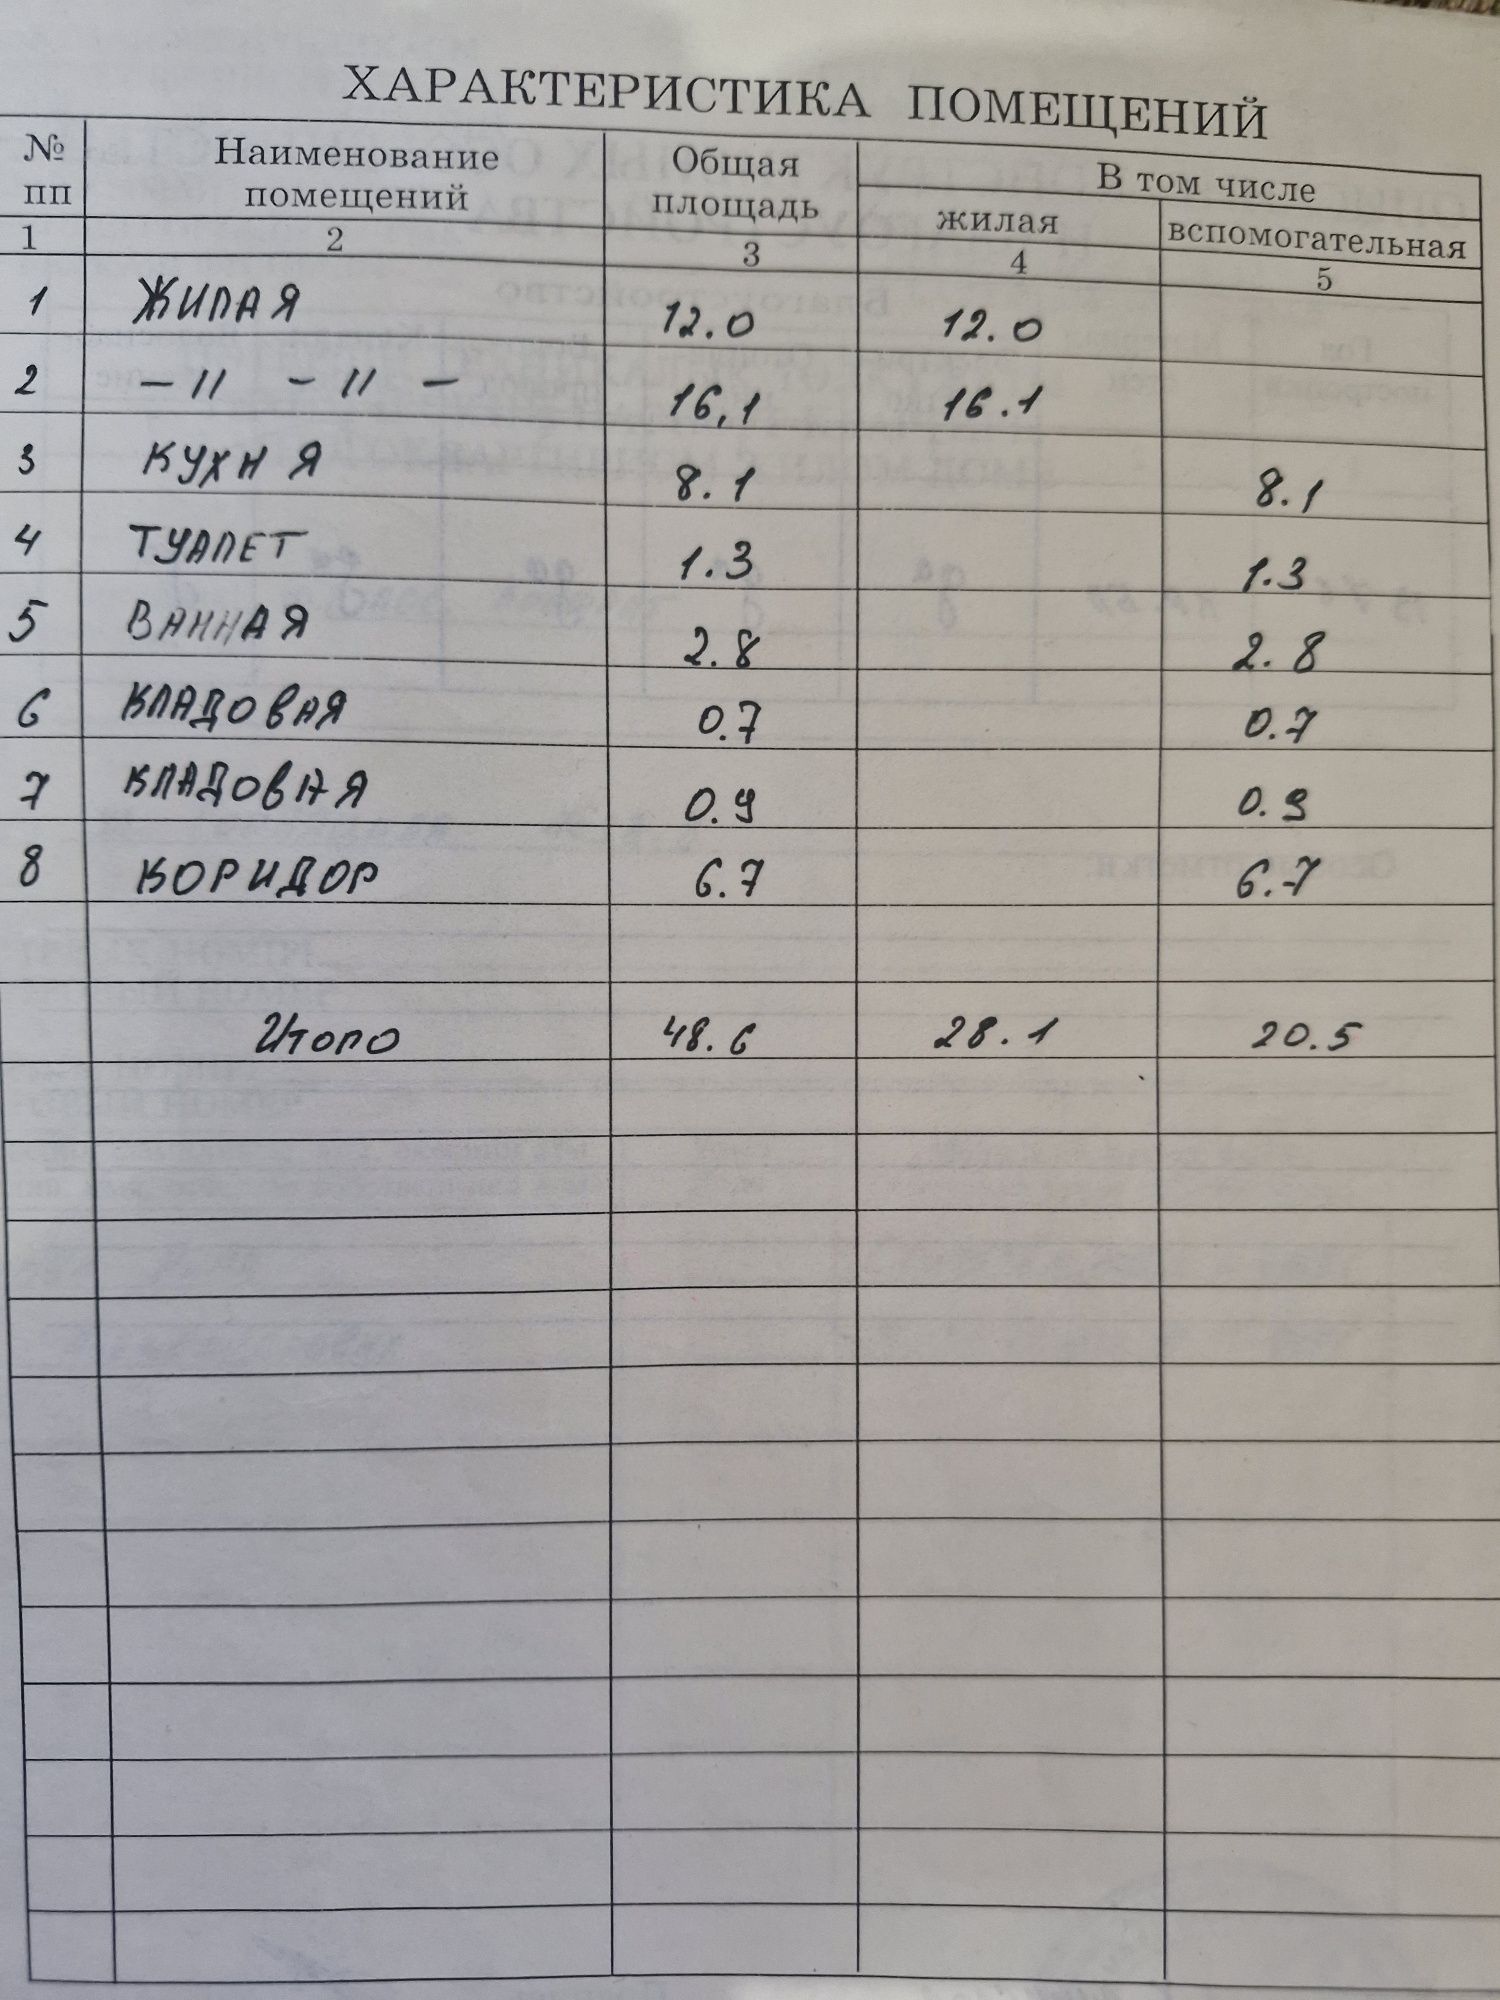 ХАРАКТЕРИСТИКА ПОМЕЩЕНИЙ
№ пп Наименование помещений Общая площадь В том числе
жилая вспомогательная
1 2 3 4 5
1 ЖИЛАЯ 12.0 12.0
2 – 〃 – 〃 – 16,1 16.1
3 КУХНЯ 8.1 8.1
4 ТУАЛЕТ 1.3 1.3
5 ВАННАЯ 2.8 2.8
6 КЛАДОВАЯ 0.7 0.7
7 КЛАДОВАЯ 0.9 0.9
8 КОРИДОР 6.7 6.7
Итого 48.6 28.1 20.5